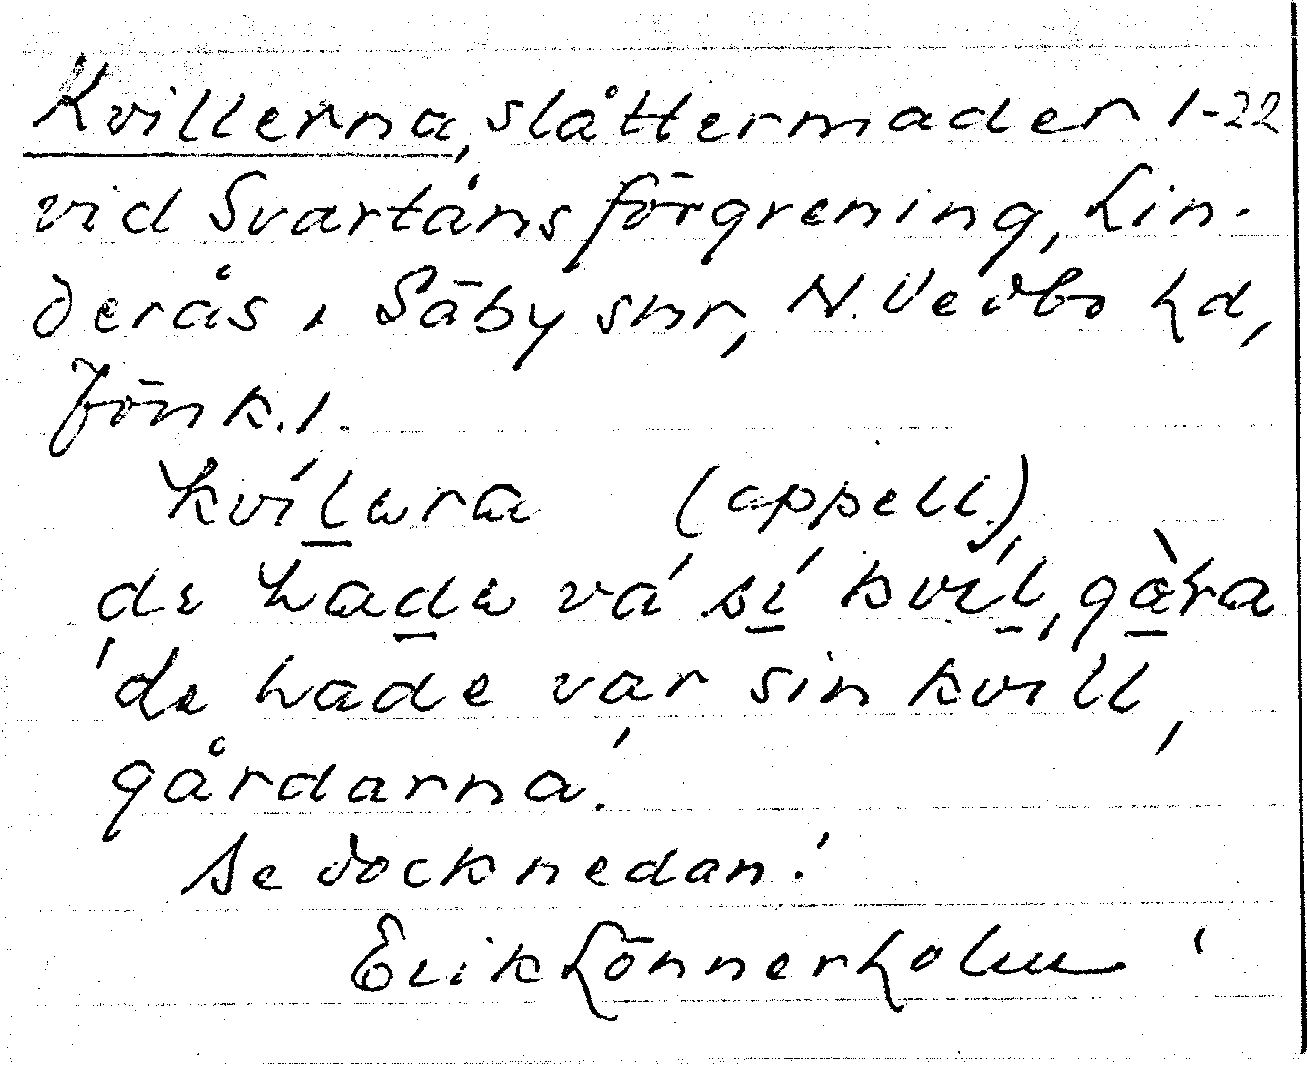 Kvillerna, slåttermader 1-22
vid Svartåns förgrening, Lin-
derås i Säby snr, N. Vedbo hd,
Jönk. l.
kvílara (appell.),
de hade vá sí kvíl, gàra
'de hade var sin kvill,
gårdarna'.
Se dock nedan!
Erik Lönnerholm